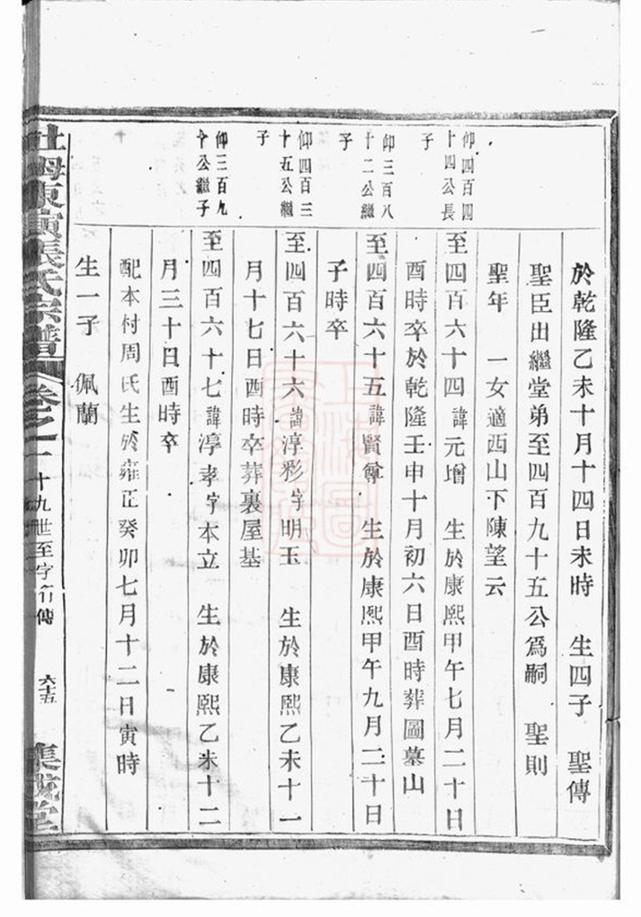 於乾隆乙未十月十四日未時　生四子　聖傳
聖臣出繼堂弟至四百九十五公爲嗣　聖則
聖年　一女適西山下陳望云
仰四百四
十四公長
子
至四百六十四諱元增　生於康熙甲午七月二十日
酉時卒於乾隆壬申十月初六日酉時葬圖墓山
仰三百八
十二公繼
子
至四百六十五諱賢　生於康熙甲午九月二十日
子時卒
仰四百三
十五公繼
子
至四百六十六諱淳彩字明玉　生於康熙乙未十一
月十七日酉時卒葬裏屋基
仰三百九
十公繼子
至四百六十七諱淳孝字本立　生於康熙乙未十二
月三十日酉時卒
配本村周氏生於雍正癸卯七月十二日寅時
生一子　佩蘭
東寅張氏宗譜　卷之一　十九世至字行傳　六十五　集誠堂